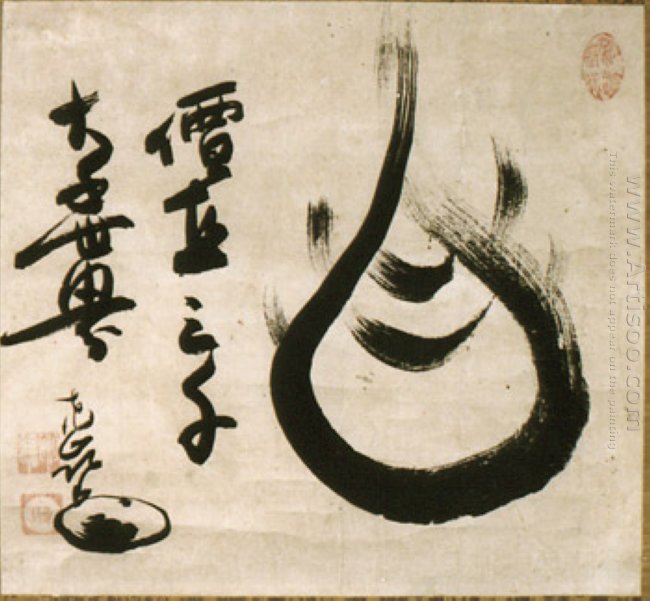 價直三千
大千世界
www.Artisoo.com
This watermark does not appear on the painting